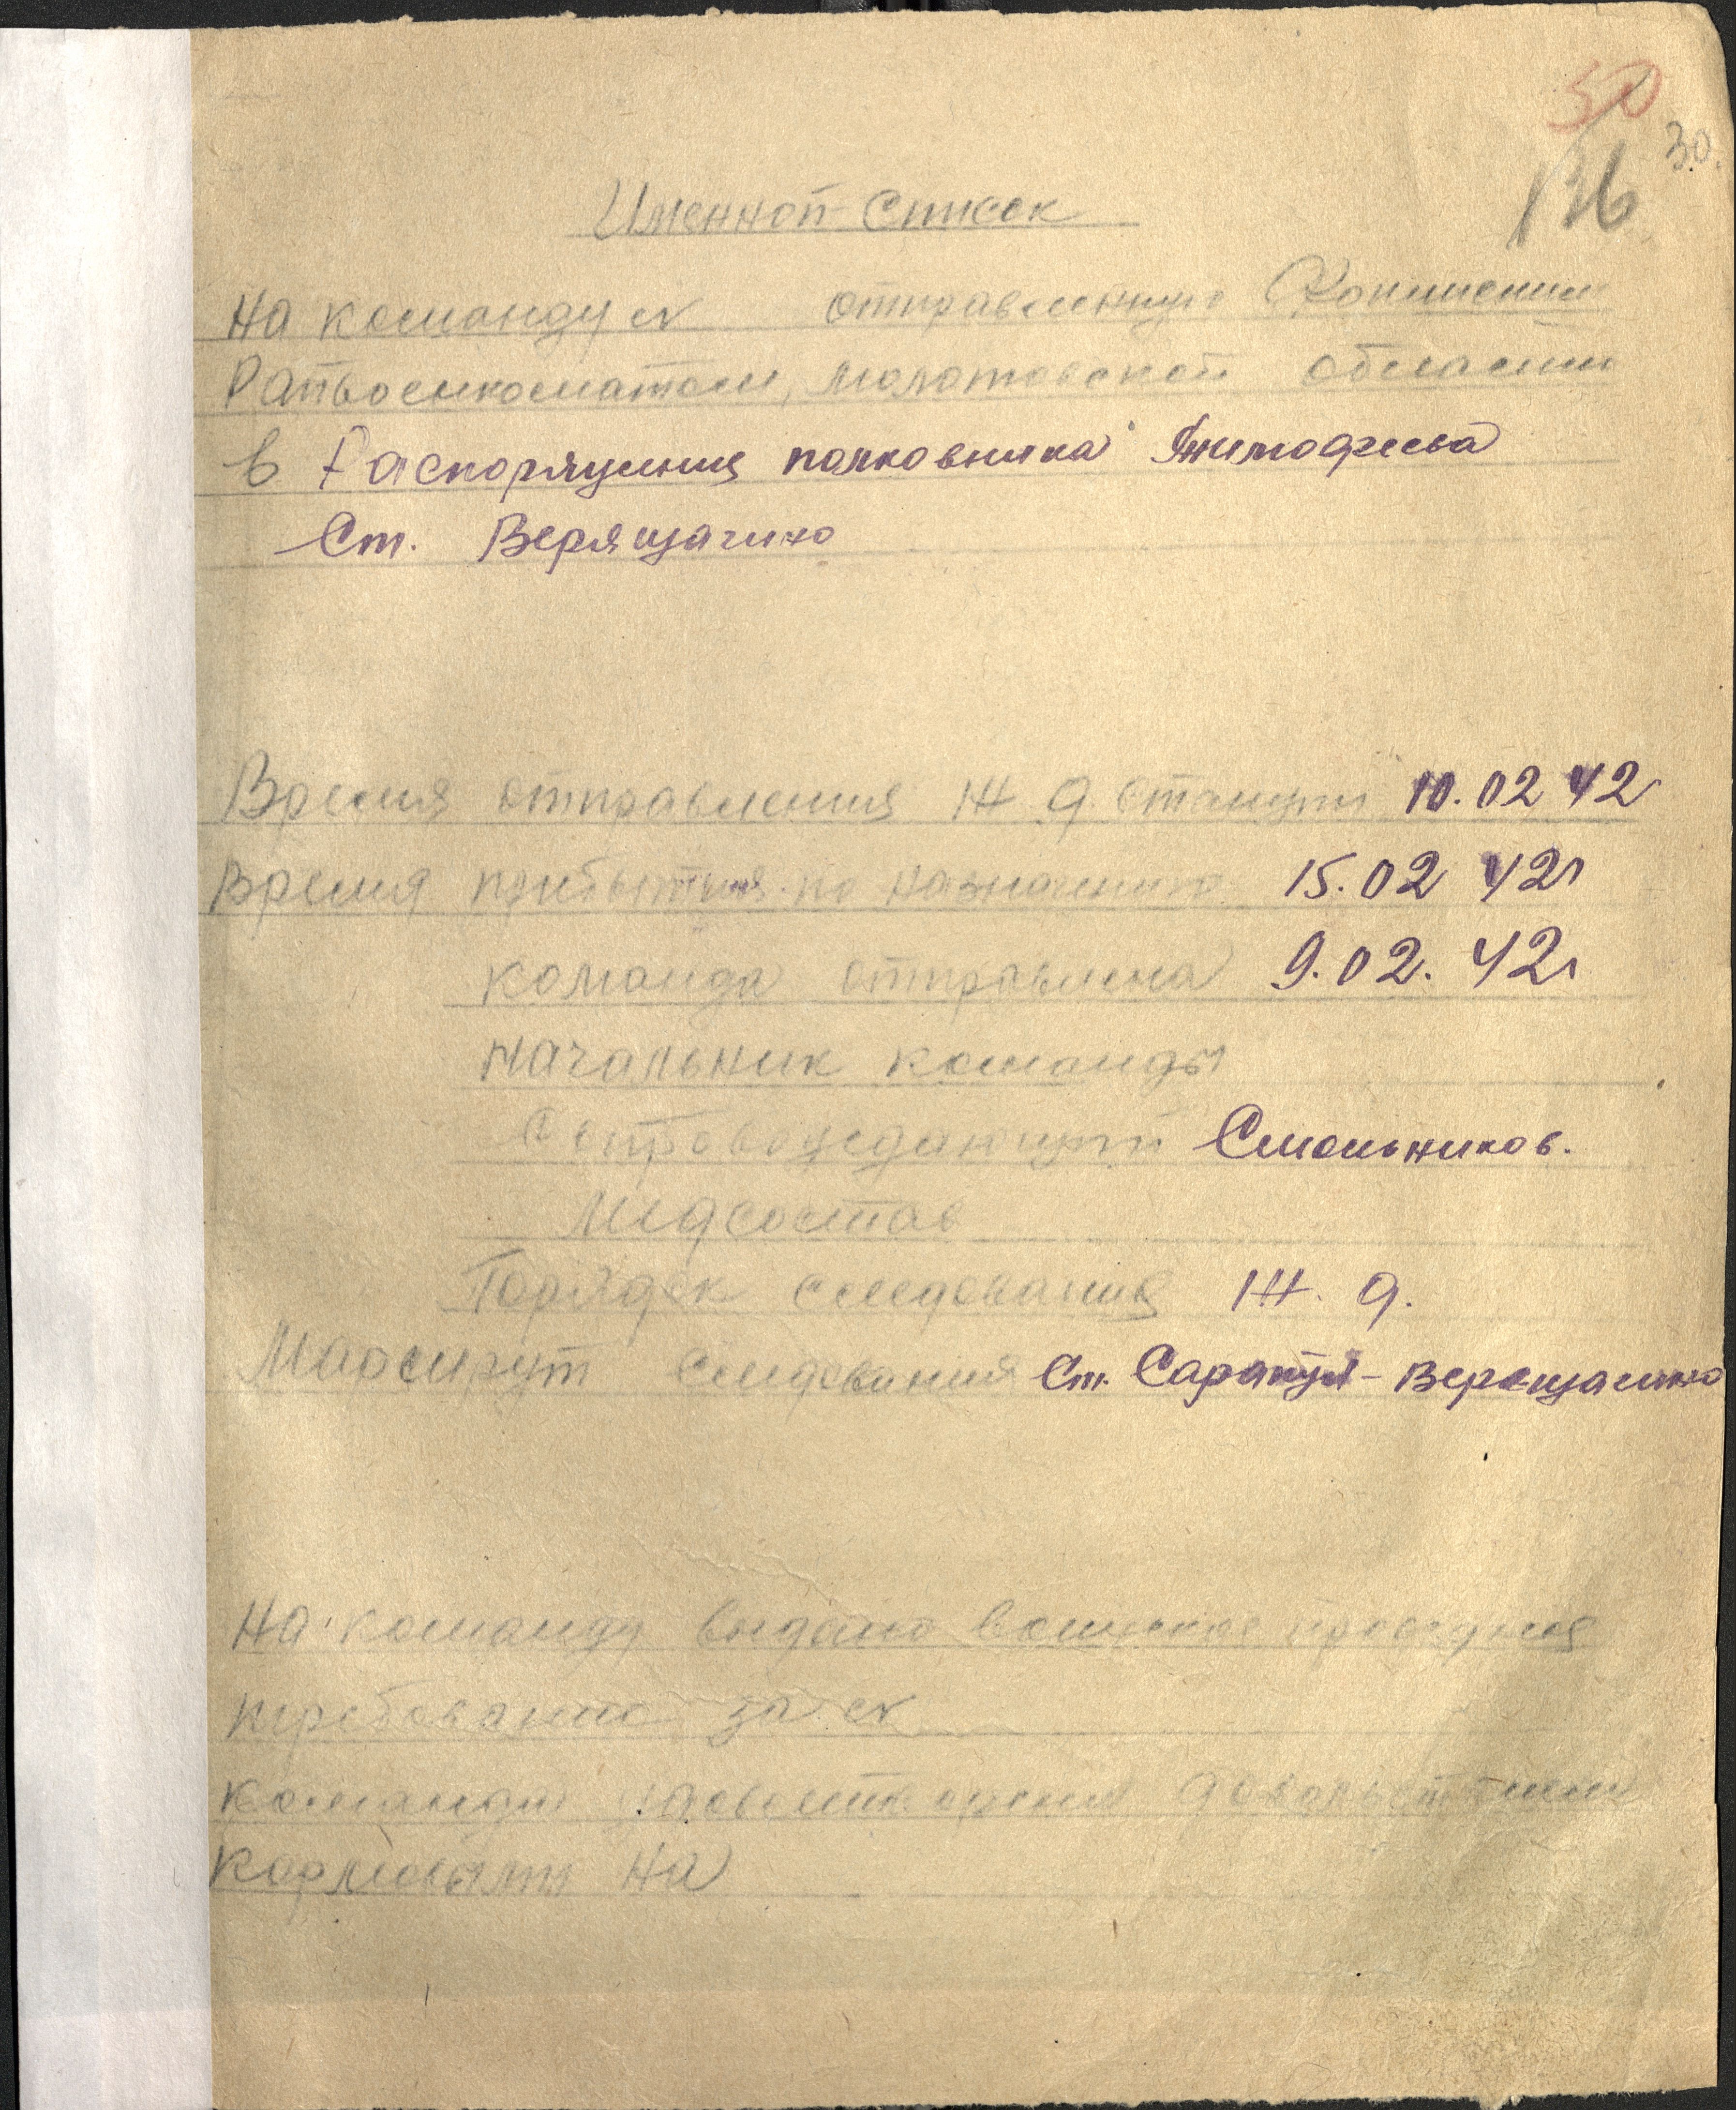 50
30.
136
Именной список
На команду № отправленную Фокинским
Райвоенкоматом, Молотовской области
в Распоряжения полковника Тимофеева
Ст. Верящагино
Время отправления Ж Д станции 10.02 42
Время прибытия по назначению 15.02 42г
команда отправлена 9.02. 42г
начальник команды
Сопровождающий Смольников.
Медсостав
Порядок следования Ж. д.
Маршрут следования Ст. Сарапул - Верещагино
На команду выдано воинское
требование за №
команда удовлетворена довольствием
кормовыми на